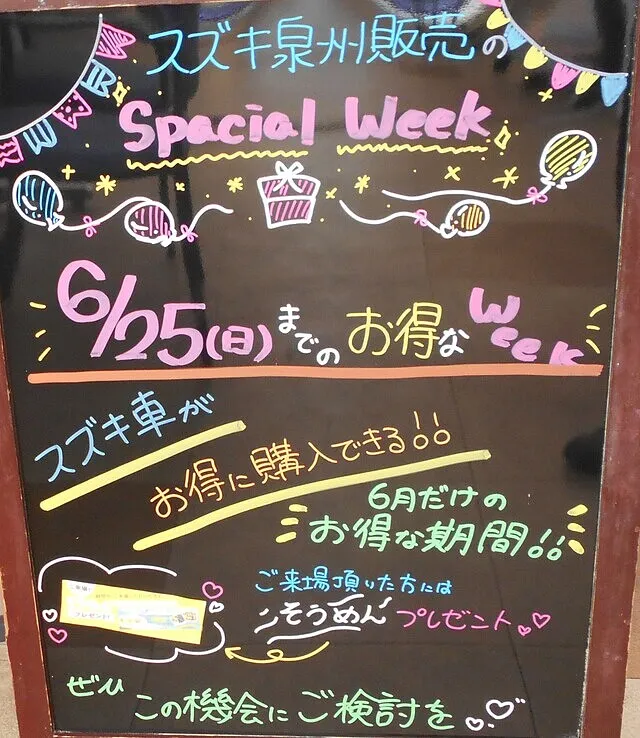 スズキ泉州販売の
Spacial Week
6/25(日)までのお得なWeek
スズキ車が
お得に購入できる!!
6月だけの
お得な期間!!
ご来場頂いた方には
そうめんプレゼント
ぜひ
この機会にご検討を